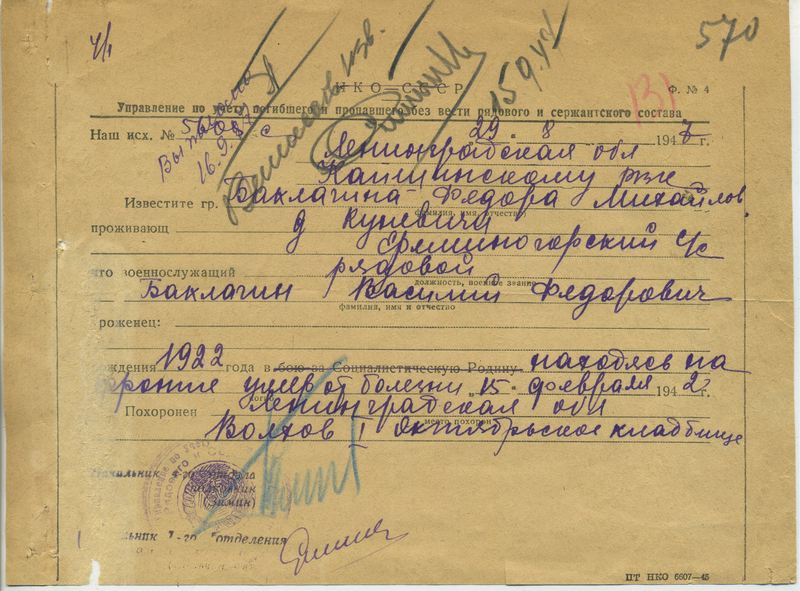 ч/1
570
15 9 47
131
НКО—СССР
Ф. № 4
Управление по учету погибшего и пропавшего без вести рядового и сержантского состава
Наш исх. № 29 8 1947 г.
16.9.
Ленинградская обл
Капшинскому рвк
Известите гр. Баклагина Федора Михайлов.
фамилия, имя, отчество
проживающ д Куневичи
Ереминогорский с/с
что военнослужащий рядовой
должность, военное звание
Баклагин Василий Федорович
фамилия, имя и отчество
роженец:
ождения 1922 года в бою за Социалистическую Родину находясь на
фронте умер от болезни „15“ февраля 1942 г.
Похоронен Ленинградская обл
место похорон
Волхов I Октябрьское кладбище
Начальник отдела
полковник
(Зимин)
льник 1-го отделения
ПТ НКО 6607—45